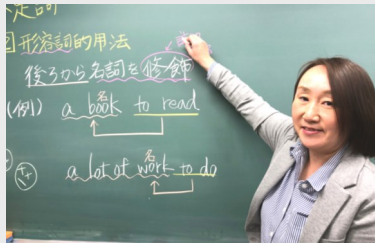 定詞
形容詞的用法
後ろから名詞を修飾
(例) a book to read
名
a lot of work to do
名